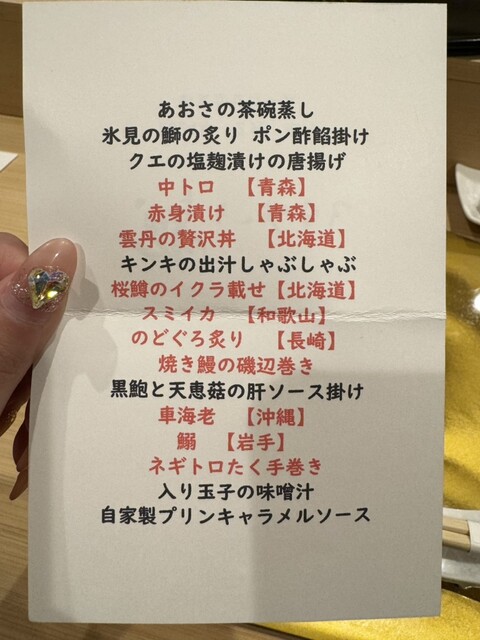 あおさの茶碗蒸し
氷見の鰤の炙り ポン酢餡掛け
クエの塩麹漬けの唐揚げ
中トロ 【青森】
赤身漬け 【青森】
雲丹の贅沢丼 【北海道】
キンキの出汁しゃぶしゃぶ
桜鱒のイクラ載せ【北海道】
スミイカ 【和歌山】
のどぐろ炙り 【長崎】
焼き鰻の磯辺巻き
黒鮑と天恵菇の肝ソース掛け
車海老 【沖縄】
鰯 【岩手】
ネギトロたく手巻き
入り玉子の味噌汁
自家製プリンキャラメルソース